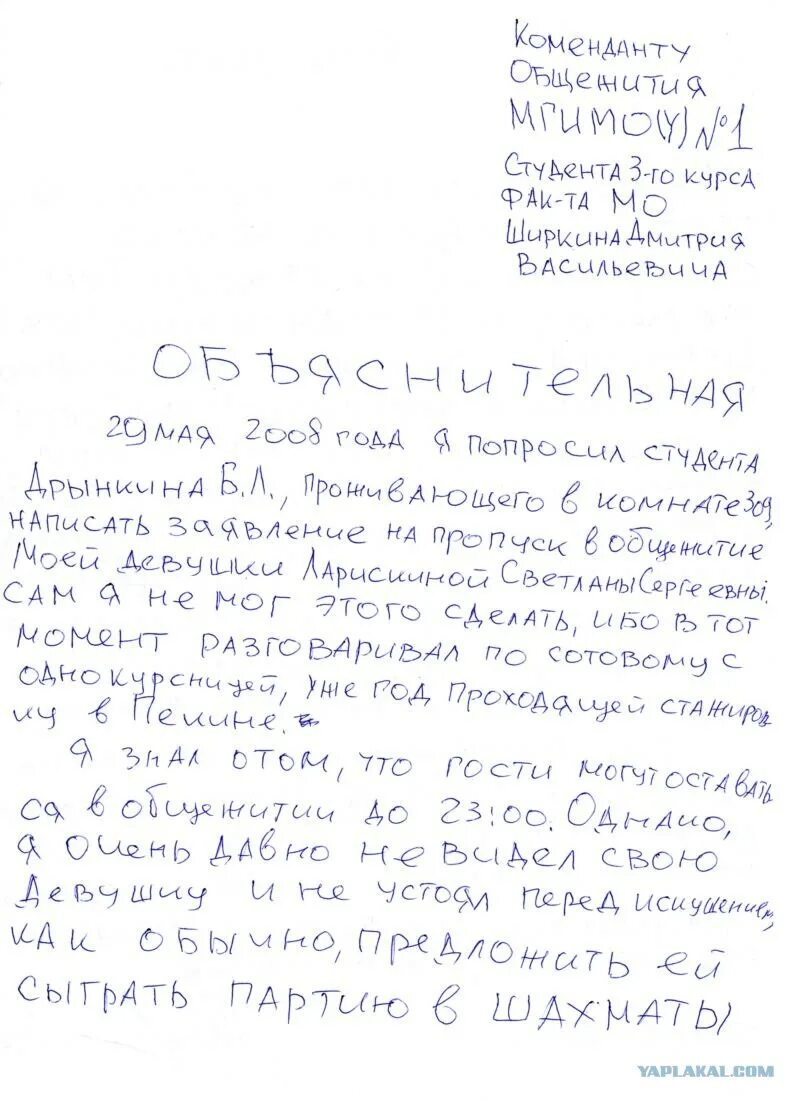 Коменданту
Общежития
МГИМО(У) №1
Студента 3-го курса
Фак-та МО
Ширкина Дмитрия
Васильевича
Объяснительная
29 мая 2008 года я попросил студента
Дрынкина Б.Л., проживающего в комнате 309,
написать заявление на пропуск в общежитие
моей девушки Ларискиной Светланы Сергеевны.
Сам я не мог этого сделать, ибо в тот
момент разговаривал по сотовому с
однокурсницей, уже год проходящей стажиров
ку в Пекине.
Я знал о том, что гости могут оставать
ся в общежитии до 23:00. Однако,
я очень давно не видел свою
девушку и не устоял перед искушением,
как обычно, предложить ей
сыграть партию в шахматы
YAPLAKAL.COM